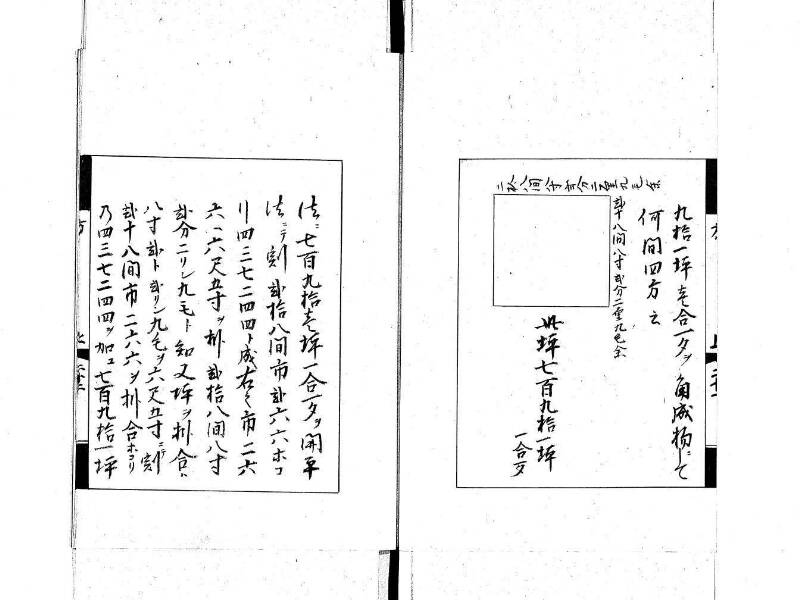 九拾一坪壱合一夕ヲ角成物ニて
何間四方云
弐十八間八寸弐分二重九毛余
二拾八間八寸弐分二重九毛余
此坪七百九拾一坪
一合一夕
法ニ七百九拾壱坪一合一夕ヲ開平
法ニテ割弐拾八間市弐六六ホコ
リ四三七二四四ト成右ノ市二六
六ヘ六尺五寸ヲ掛弐拾八間八寸
弐分二リン九毛ト知又坪ヲ掛合ハ
八寸弐ト弐リン九毛ヲ六尺五寸ニテ割
弐十八間市二六六ヲ掛合ホコリ
乃四三七二四四ヲ加ヱ七百九拾一坪